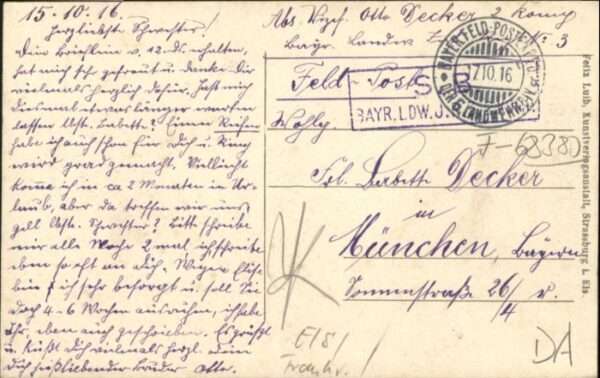 15.-10.16.
Herzliebste Schwester!
Dein Brieflein v. 12. ds. erhalten,
hat mich sehr gefreut u. danke Dir
vielmals herzlich dafür. Hast mich
diesmal etwas länger warten
lassen lbste. Babette? Einen Reifen
habe ich auch schon für Dich u. Ring
wird grad gemacht. Vielleicht
komme ich in ca 2 Monaten in Ur-
laub, aber da treffen wir uns
gell lbste. Schwester? Bitt schreibe
mir alle Woche 2 mal, ich schreibe
eben so oft an Dich. Wegen Elise
bin ich sehr besorgt u. soll Sie
doch 4-6 Wochen ausruhen, ich habe
Ihr eben auch geschrieben. Es grüßt
u. küßt Dich vielmals herzl. Dein
Dich heißliebender Bruder Otto.
Abs. Vizef. Otto Decker 2 Komp
Bayr. Landw. No. 3
Feld-Post
S B
BAYR. LDW. J.
BAYER. FELD-POSTEXP.
17.10.16
DER 6. LANDWEHR-DIV.
F-68380
Wohlg.
Frl. Babette Decker
in
München, Bayern
Sommerstraße 26/4 r.
Els/
Frankr.
DA
Felix Luib, Kunstverlagsanstalt, Strassburg i. Els.